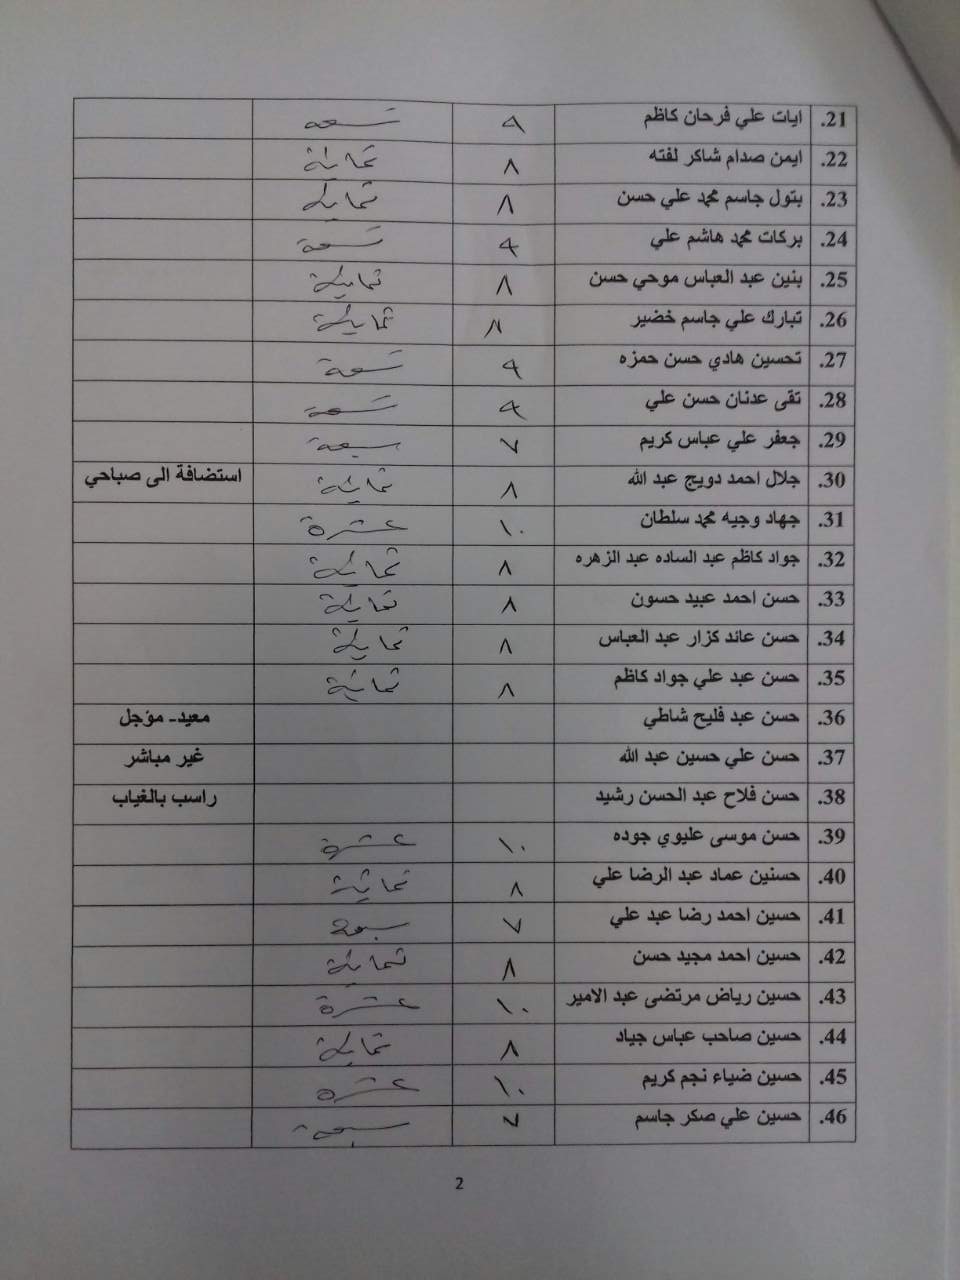 21. ايات علي فرحان كاظم ٩ تسعه
22. ايمن صدام شاكر لفته ٨ ثمانية
23. بتول جاسم محمد علي حسن ٨ ثمانية
24. بركات محمد هاشم علي ٩ تسعة
25. بنين عبد العباس موحي حسن ٨ ثمانية
26. تبارك علي جاسم خضير ٨ ثمانية
27. تحسين هادي حسن حمزه ٩ تسعة
28. تقى عدنان حسن علي ٩ تسعة
29. جعفر علي عباس كريم ٧ سبعة
30. جلال احمد دويج عبد الله ٨ ثمانية استضافة الى صباحي
31. جهاد وجيه محمد سلطان ١٠ عشرة
32. جواد كاظم عبد الساده عبد الزهره ٨ ثمانية
33. حسن احمد عبيد حسون ٨ ثمانية
34. حسن عائد كزار عبد العباس ٨ ثمانية
35. حسن عبد علي جواد كاظم ٨ ثمانية
36. حسن عبد فليح شاطي معيد- مؤجل
37. حسن علي حسين عبد الله غير مباشر
38. حسن فلاح عبد الحسن رشيد راسب بالغياب
39. حسن موسى عليوي جوده ١٠ عشرة
40. حسنين عماد عبد الرضا علي ٨ ثمانية
41. حسين احمد رضا عبد علي ٧ سبعة
42. حسين احمد مجيد حسن ٨ ثمانية
43. حسين رياض مرتضى عبد الامير ١٠ عشرة
44. حسين صاحب عباس جياد ٨ ثمانية
45. حسين ضياء نجم كريم ١٠ عشرة
46. حسين علي صكر جاسم ٧ سبعة
2